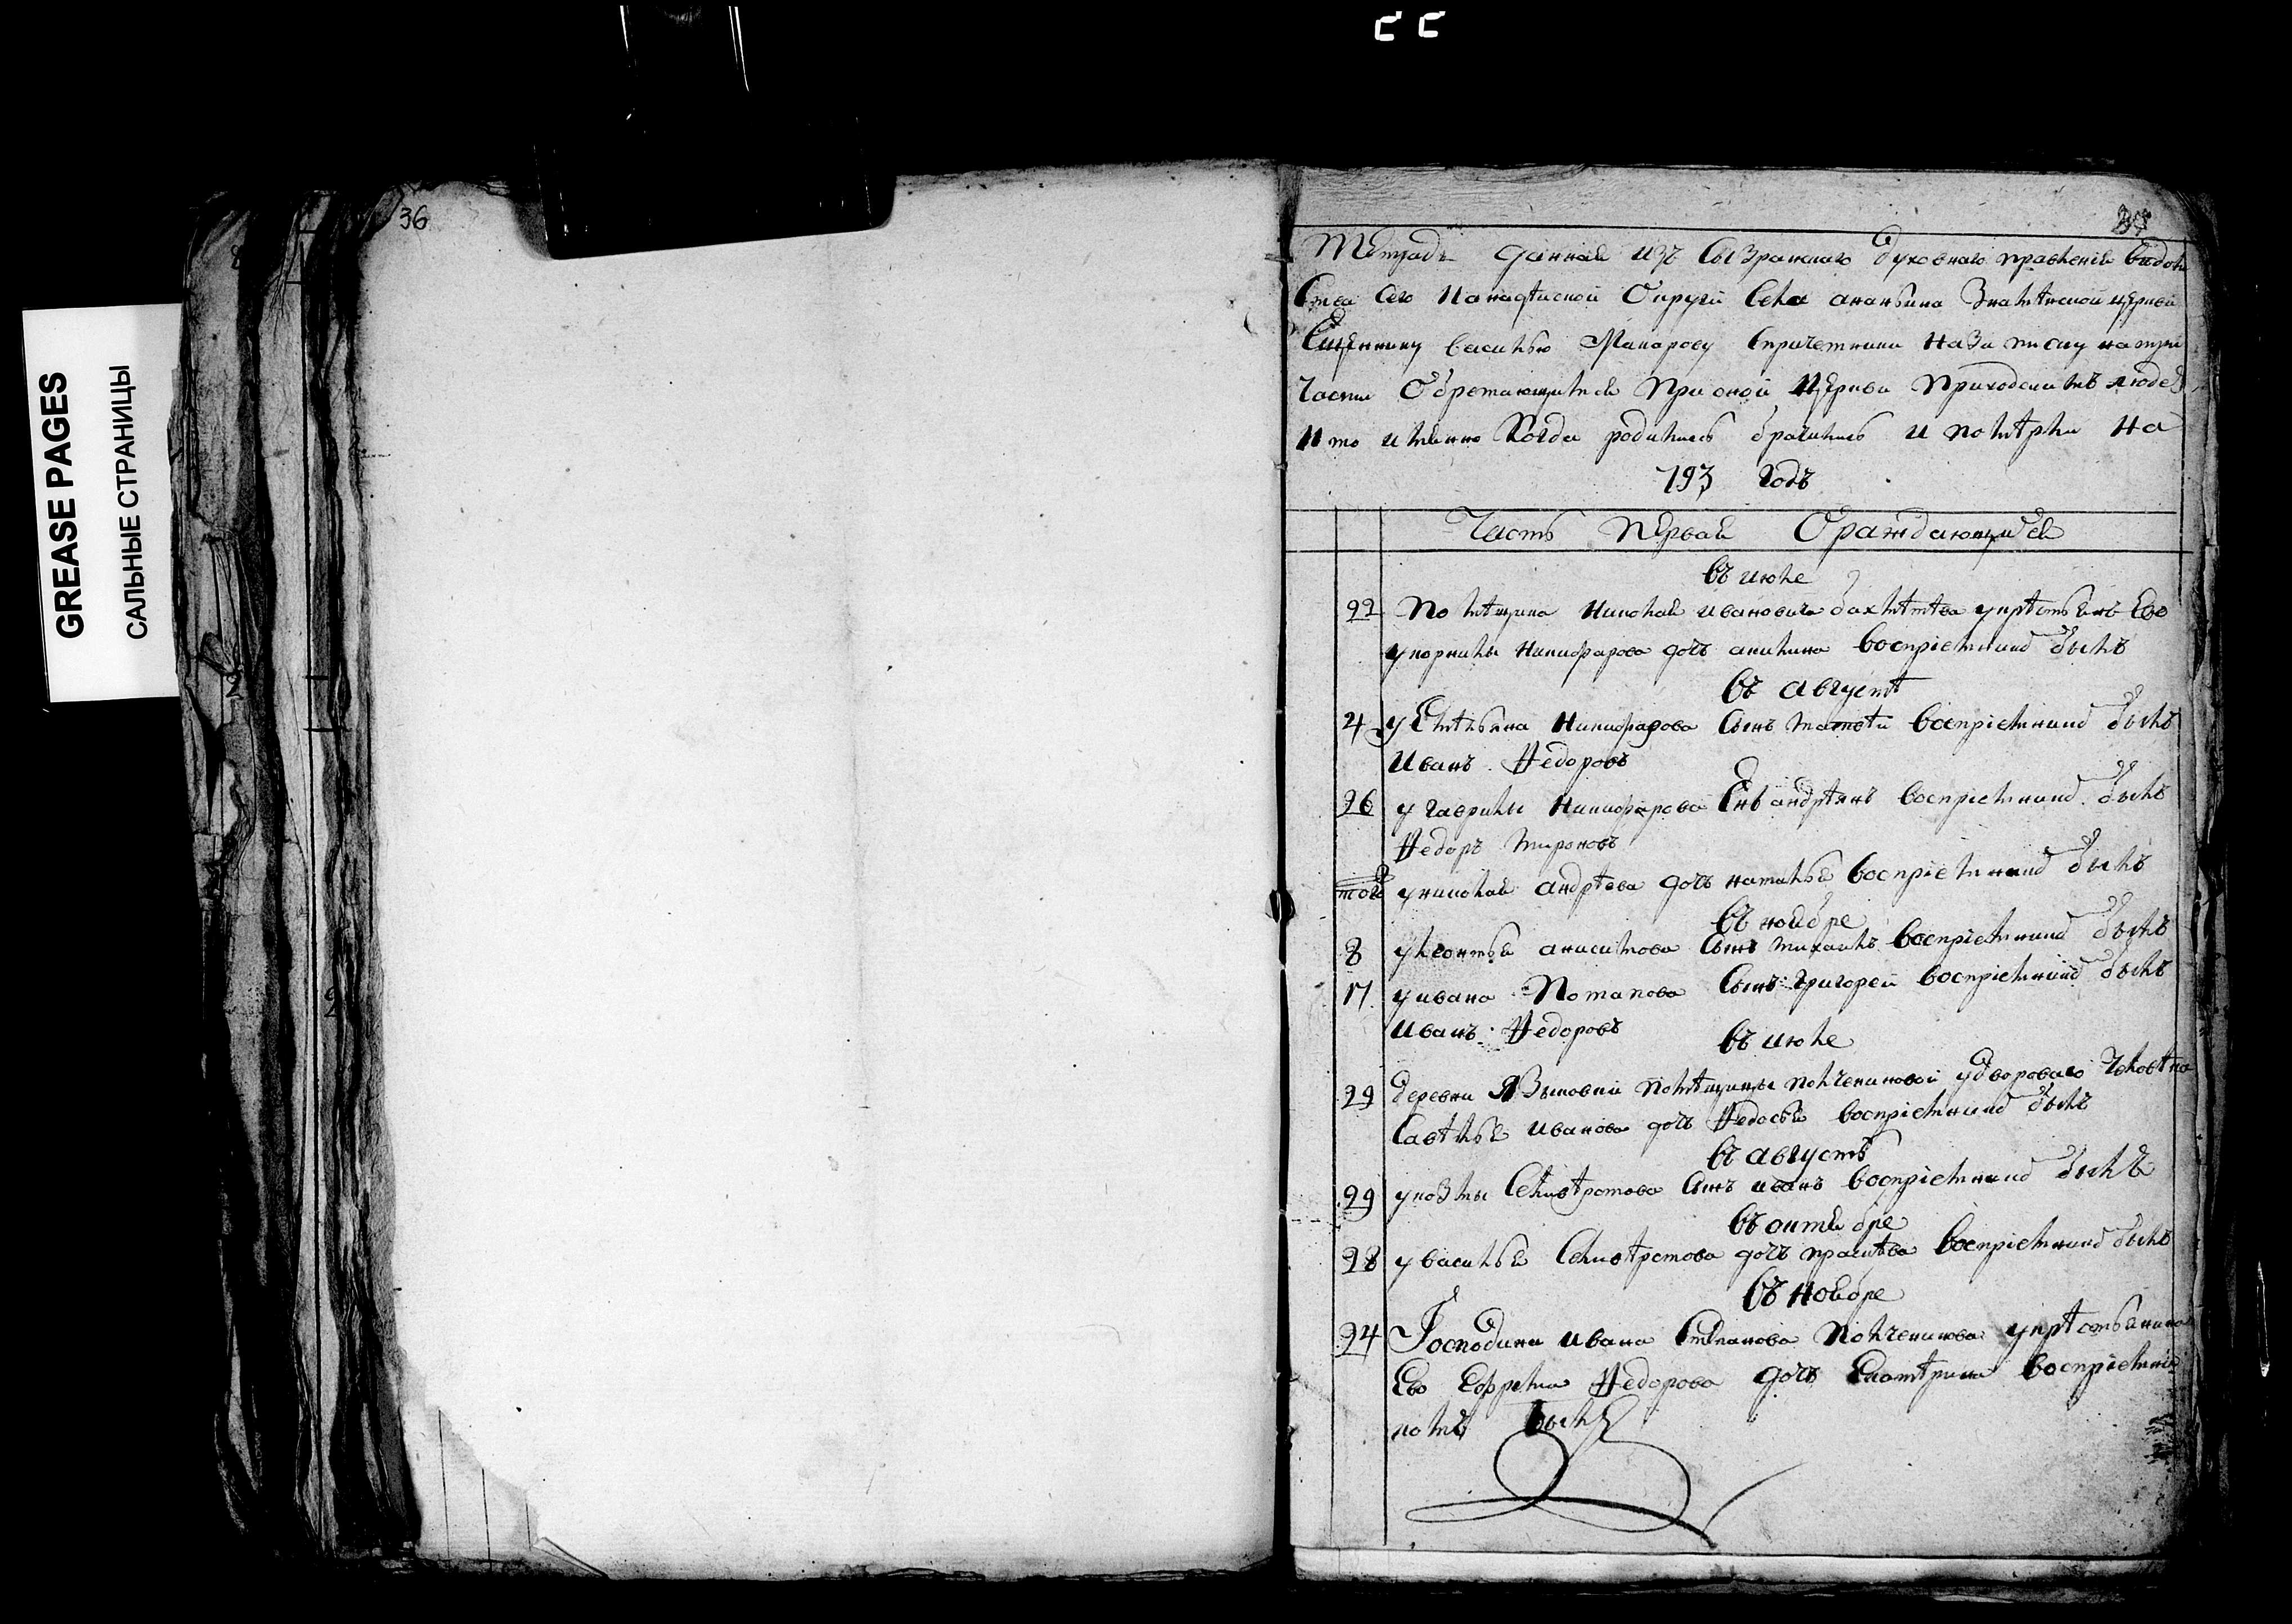 GREASE PAGES
САЛЬНЫЕ СТРАНИЦЫ
36
Тетрадь данная изъ Сызранскаго духовнаго правления ведом
ства его Канадѣйской округи села ананьина церкви
Сщеннику василью Макарову спричетники назаписку натри
части Обретающихся При оной Церкви Приходскихъ людей
Кто имянно Когда родились брачились и померли на
793 годъ
Часть Первая Ораждающихся
Въ июле
22 Помѣщика Николая ивановича бахметева укрестьянъ Ево
укорнилы никифарова дочь акилина воспрiемникъ былъ
въ августѣ
4 у Емельяна Никифарова сынъ воспрiемникъ былъ
Иванъ Федоровъ
26 у гаврилы Никифарова Снъ андреянъ воспрiемникъ былъ
Федоръ мироновъ
тогож униколая андрѣева дочь наталья воспрiемникъ былъ
въ ноябре
8 улеонтья анисимова сынъ михаилъ воспрiемникъ былъ
17 уивана Потапова Сынъ григорей воспрiемникъ былъ
Иванъ Федоровъ
въ июле
29 деревни Языковки помѣщицы полчениновой удвороваго человѣка
Савѣлья иванова дочь Федосья воспрiемникъ былъ
въ августѣ
29 укозмы Селивѣрстова сынъ иванъ воспрiемникъ былъ
въ октябре
28 увасилья Селивѣрстова дочь восприемникъ былъ
въ Ноябре
24 Господина ивана Степанова Полченинова укрестьянина
Ево Ефрема Федорова дочь Екатѣрина воспрiемни
комъ былъ